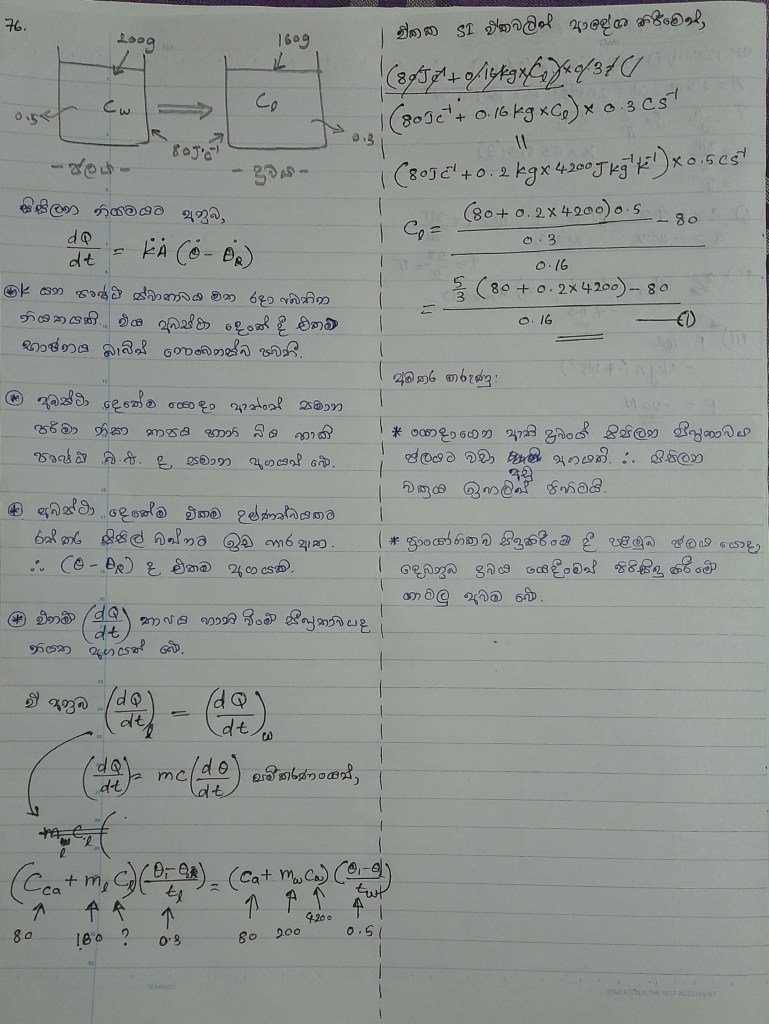 76.
200g
160g
Cw
Cl
0.5
80J°c⁻¹
0.3
- ජලය -
- ද්‍රවය -
සිසිලන නියමයට අනුව,
dQ/dt = kA (θ - θR)
* k යනු පෘෂ්ඨ ස්වභාවය මත රඳා පවතින
නියතයකි. එය අවස්ථා දෙකේ දී එකම
භාජනය බැවින් නොවෙනස්ව පවතී.
* අවස්ථා දෙකේම යොදා ඇත්තේ සමාන
පරිමා නිසා තාපය හානි විය හැකි
පෘෂ්ඨ ව.ඵ. ද සමාන අගයක් වේ.
* අවස්ථා දෙකේම එකම උෂ්ණත්වයකට
රත් කර සිසිල් වන්නට ඉඩ හැර ඇත.
∴ (θ - θR) ද එකම අගයකි.
* එනම් (dQ/dt) තාපය හානි වීමේ සීඝ්‍රතාවය ද
නියත අගයක් වේ.
ඒ අනුව (dQ/dt)l = (dQ/dt)w
(dQ/dt) = mc (dθ/dt) සමීකරණයෙන්,
(Cca + ml Cl) (θ₁-θR/tl) = (Ca + mw Cw) (θ₁-θ/tw)
80 160 ? 0.3 80 200 4200 0.5
ඒකක SI ඒකවලින් ආදේශ කිරීමෙන්,
(80Jc⁻¹ + 0.16kg × Cl) × 0.3
(80Jc⁻¹ + 0.16 kg × Cl) × 0.3 Cs⁻¹
=
(80Jc⁻¹ + 0.2 kg × 4200 J kg⁻¹ k⁻¹) × 0.5 Cs⁻¹
Cl = ((80 + 0.2 × 4200) 0.5 / 0.3 - 80) / 0.16
= (5/3 (80 + 0.2 × 4200) - 80) / 0.16 —(1)
අමතර කරුණු:
* යොදාගෙන ඇති ද්‍රවයේ සිසිලන සීඝ්‍රතාවය
ජලයට වඩා අඩු අගයකි. ∴ සිසිලන
වක්‍රය ඉහළින් පිහිටයි.
* ප්‍රායෝගිකව සිදුකිරීමේ දී පළමුව ජලය යොදා,
දෙවනුව ද්‍රවය යෙදීමෙන් පිරිසිදු කිරීමේ
ගැටලු අවම වේ.